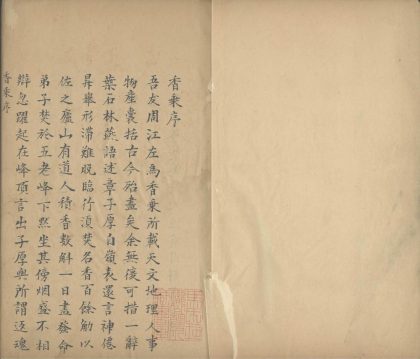 香乘序
吾友周江左馬香乘所載天文地理人事
物產囊括古今殆盡矣余無復可措一辭
葉石林燕語述章子厚自嶺表還言神僊
昇舉形滯難脫臨行須焚名香百餘觔以
佐之廬山有道人積香數斛一日盡發命
弟子焚於五老峰下默坐其傍烟盛不相
辯忽躍起在峰頂言出子厚與所謂返魂
香乘序